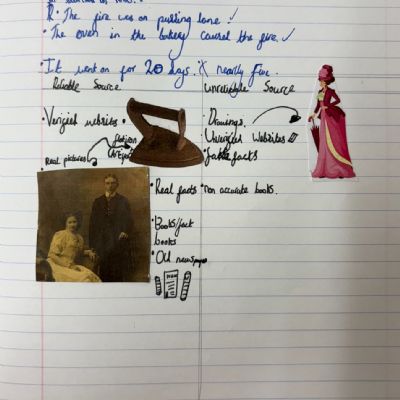 R · The fire was on pudding lane! ✓
• The oven in the bakery caused the fire. ✓
• It went on for 20 days. X nearly five.
Reliable Source
unreliable Source
• Verified websites.
• Drawings.
• Unverified Websites
• fake facts
Real pictures
• Real facts
• non accurate books.
• Books/fact
books
• Old newspaper